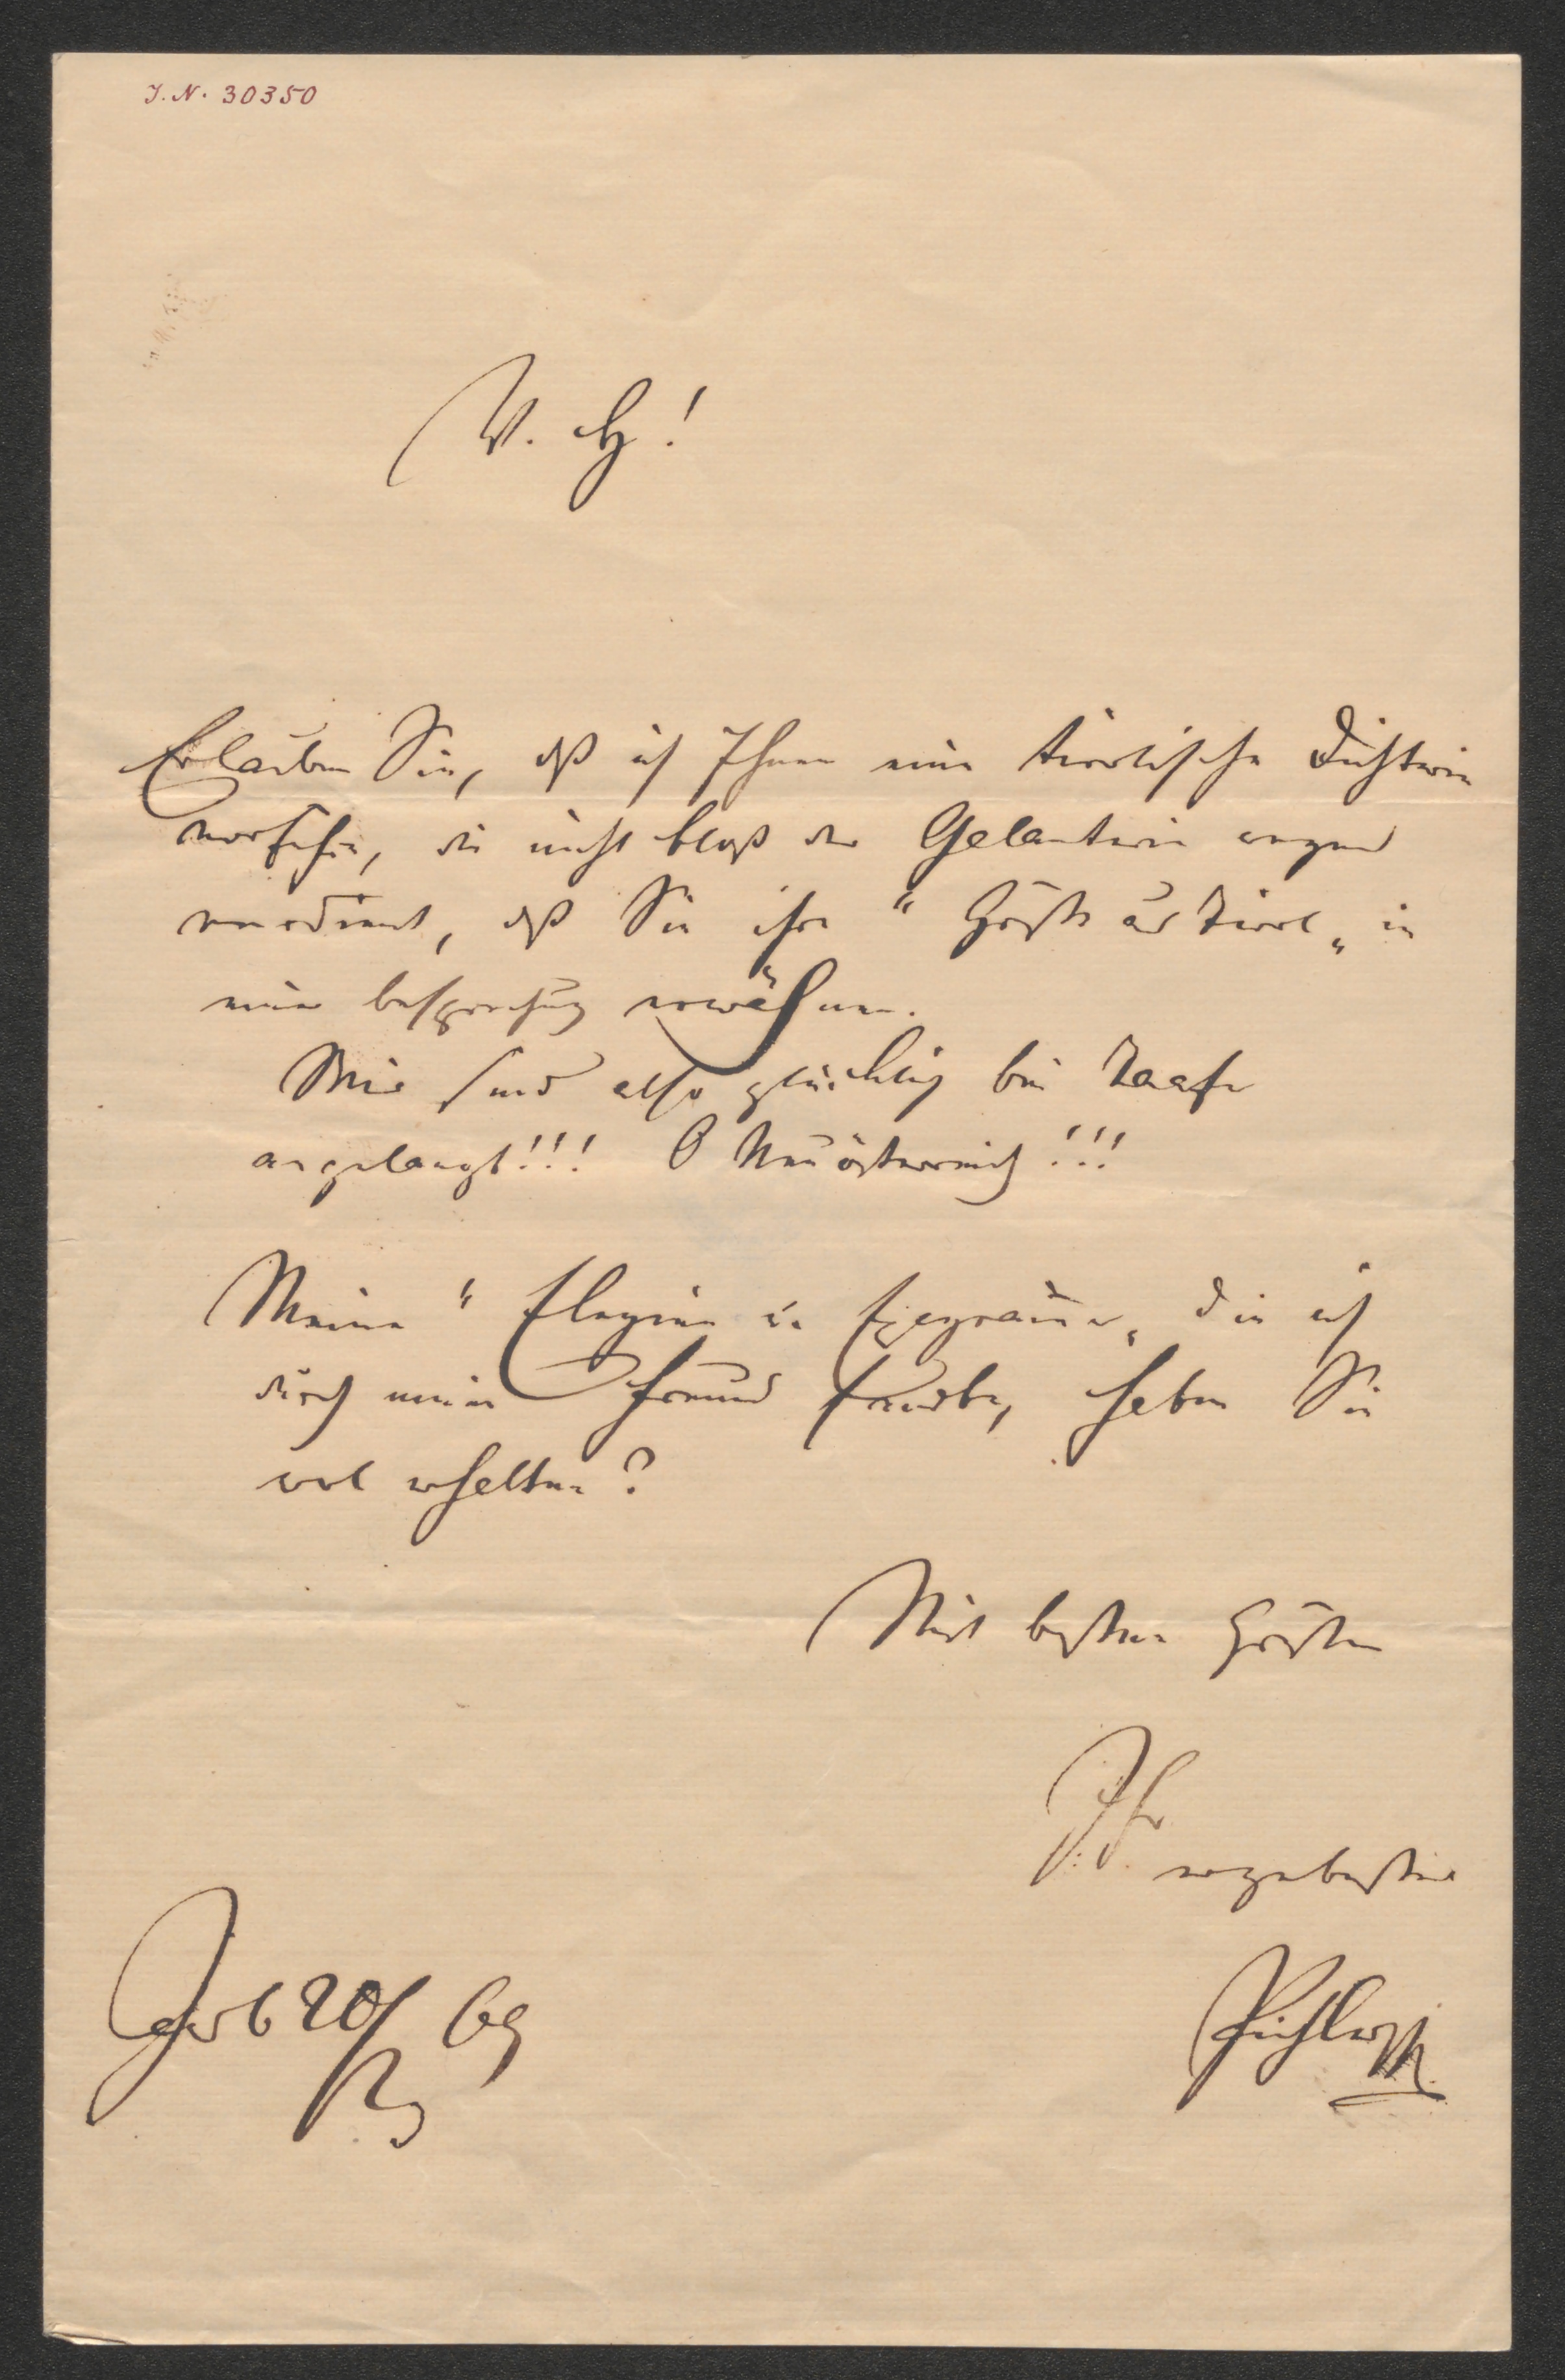 J. N. 30350
V. H!
Erlauben Sie, dß ich Ihnen eine tirolische Dichterin
vorführe, die nicht bloß der Galanterie wegen
verdient, dß Sie ihre "Grüße aus Tirol„ in
einer besprechung erwähnen.
Wir sind also glücklich bei Taafe
angelangt!!! O Neuösterreich!!!
Meine "Elegien u. Epigramme„ die ich
durch meinen Freund sandte, haben Sie
wol erhalten?
Mit besten Grüßen
Ihr
ergebenster
Pichler
20/ 69